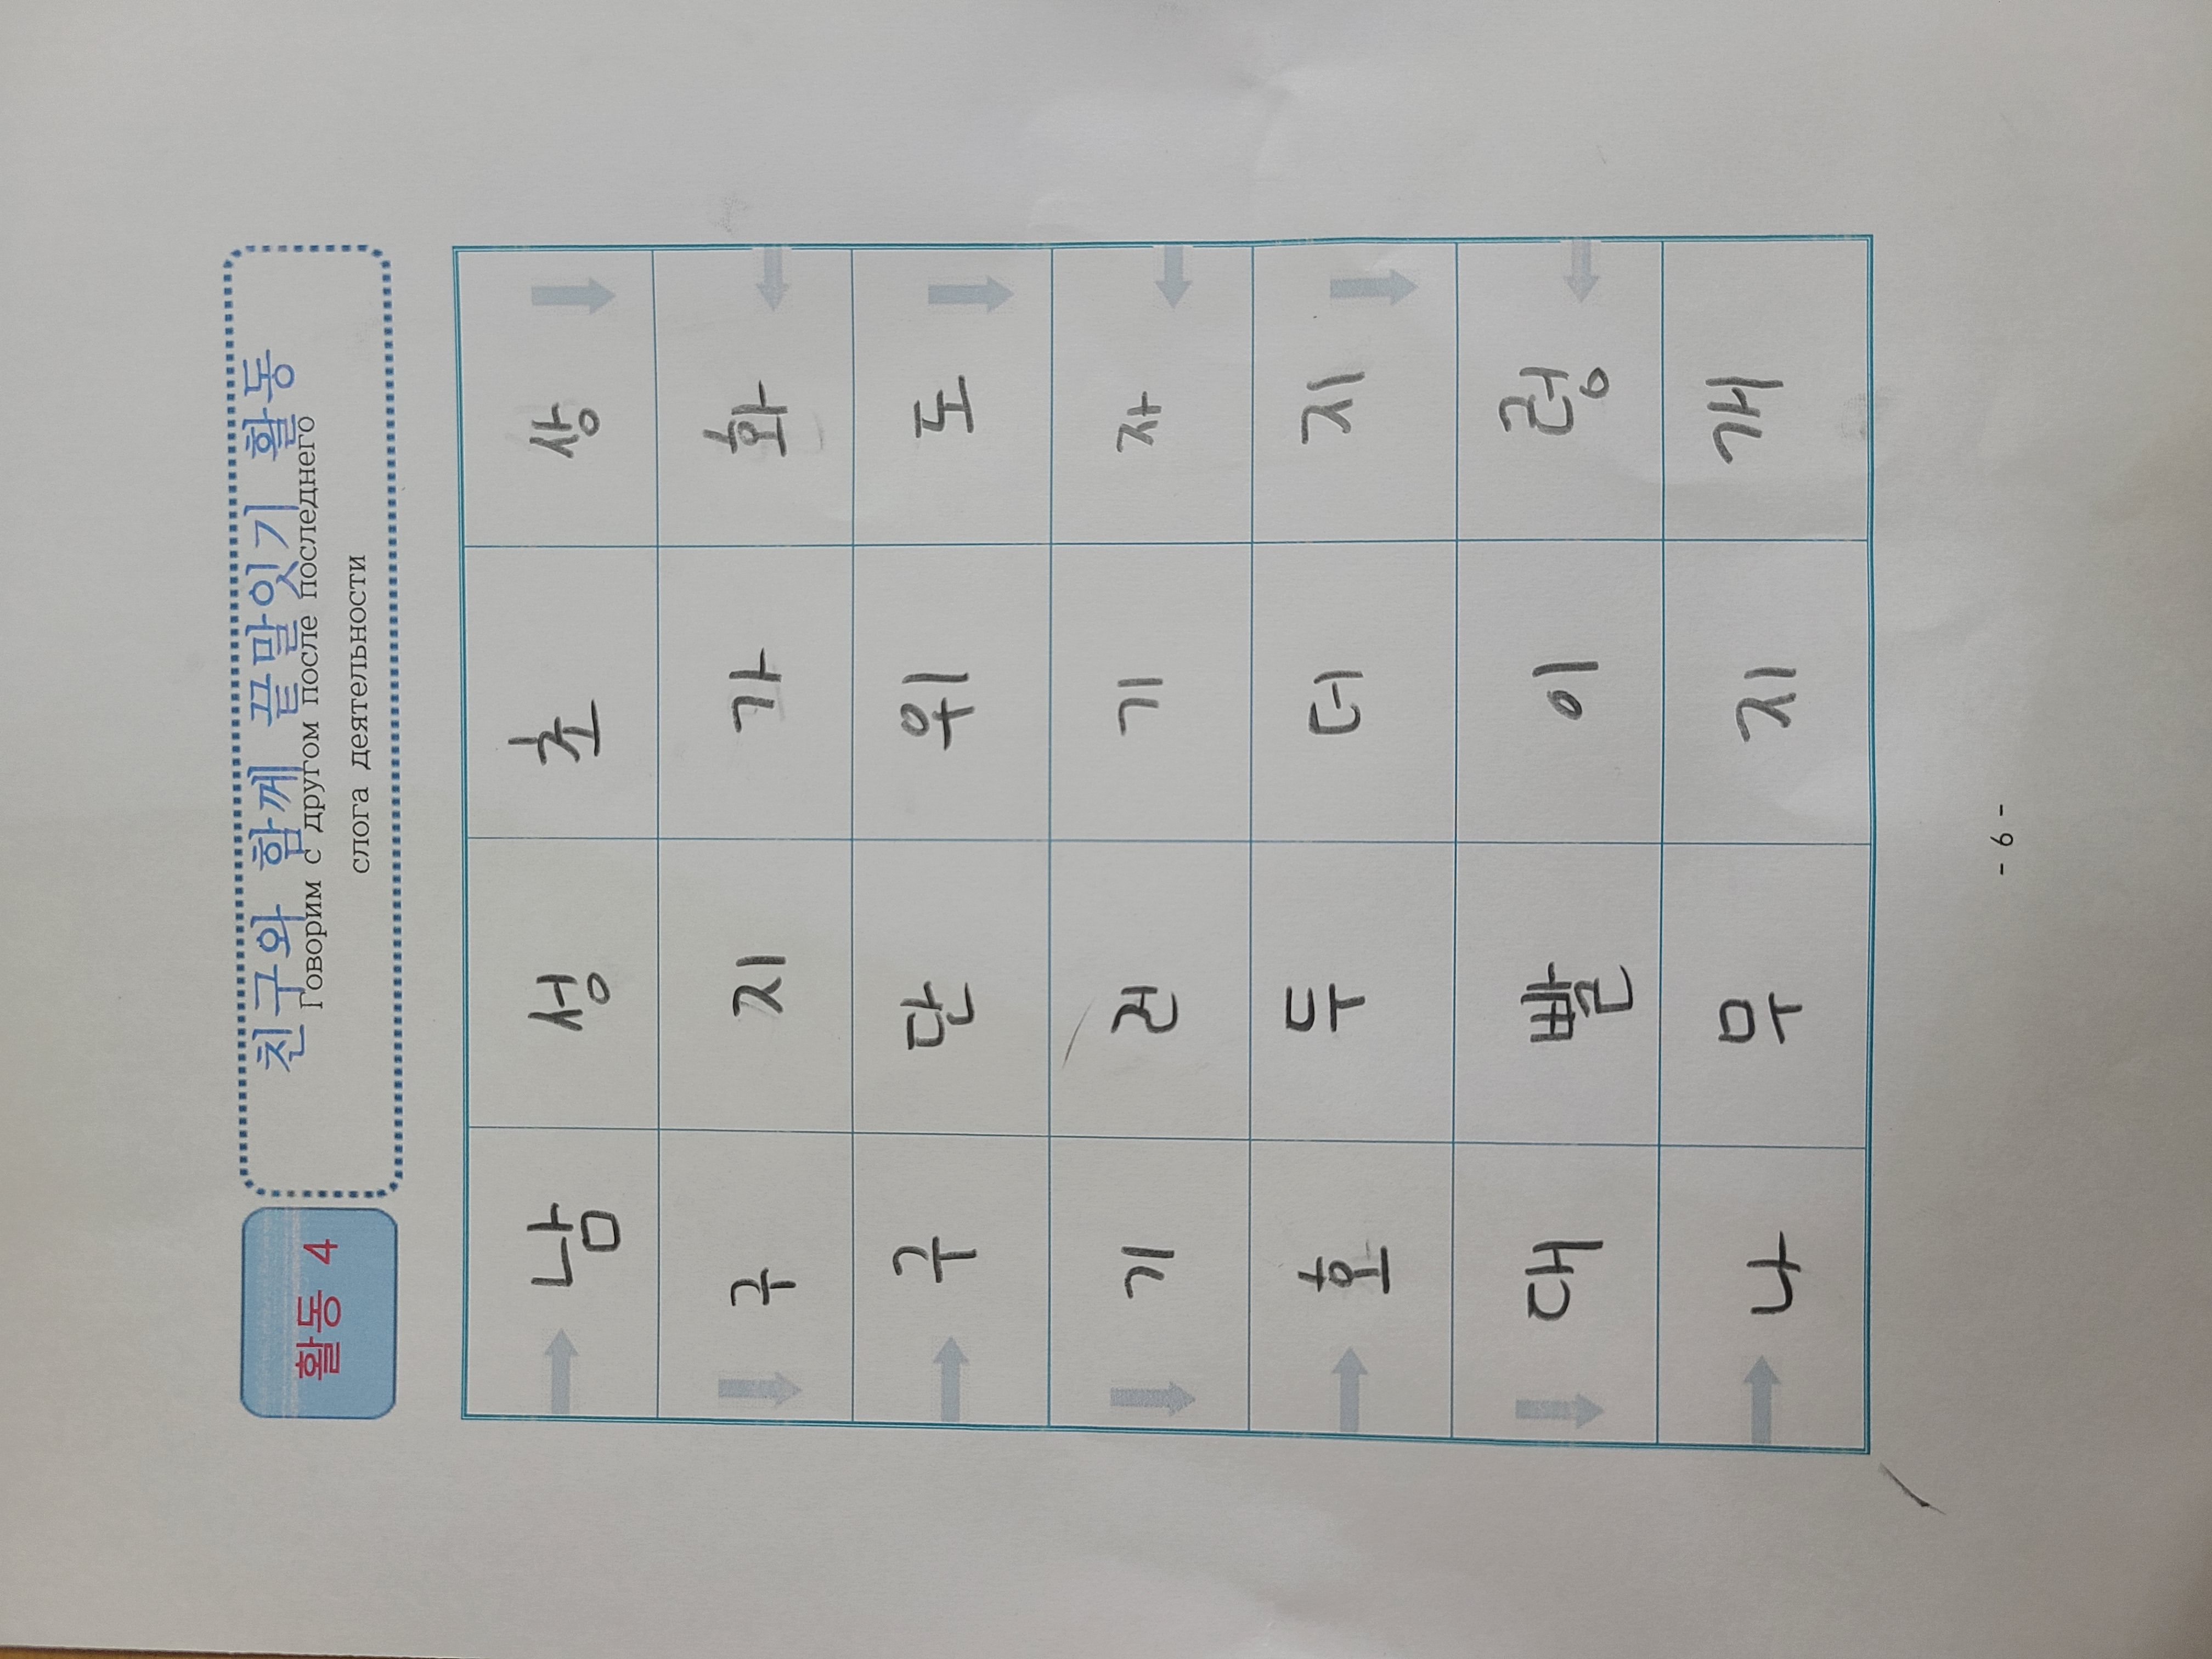 활동 4
친구와 함께 끝말잇기 활동
Говорим с другом после последнего
слога деятельности
남 성 초 상
구 지 가 화
구 단 위 도
기 건 기 자
호 두 더 지
대 빨 이 렁
나 무 지 개
- 6 -